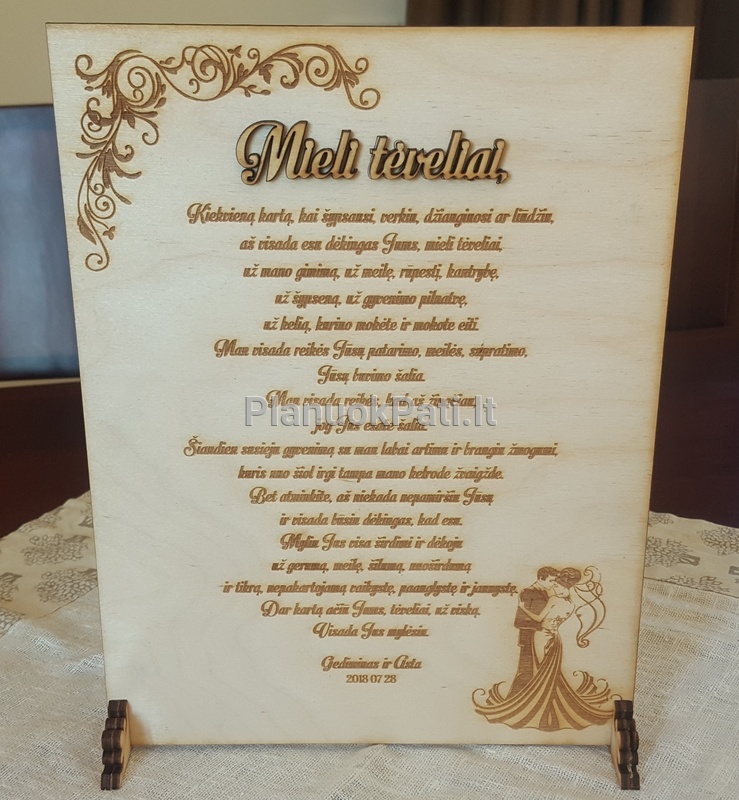 Mieli tėveliai,
Kiekvieną kartą, kai šypsausi, verkiu, džiaugiuosi ar liūdžiu,
aš visada esu dėkingas Jums, mieli tėveliai,
už mano gimimą, už meilę, rūpestį, kantrybę,
už šypseną, už gyvenimo pilnatvę,
už kelią, kuriuo mokėte ir mokote eiti.
Man visada reikės Jūsų patarimo, meilės, supratimo,
Jūsų buvimo šalia.
Man visada reikės, kad aš žinočiau,
PlanuokPati.lt
jog Jūs esate šalia.
Šiandien susieju gyvenimą su man labai artimu ir brangiu žmogumi,
kuris nuo šiol irgi tampa mano kelrode žvaigžde.
Bet atminkite, aš niekada nepamiršiu Jūsų
ir visada būsiu dėkingas, kad esu.
Myliu Jus visa širdimi ir dėkoju
už gerumą, meilę, šilumą, nuoširdumą
ir tikrą, nepakartojamą vaikystę, paauglystę ir jaunystę.
Dar kartą ačiū Jums, tėveliai, už viską.
Visada Jus mylėsiu.
Gediminas ir Asta
2018 07 28